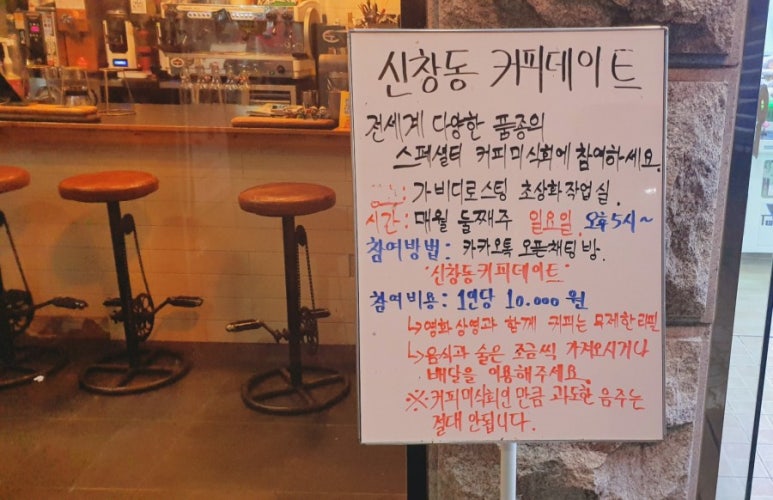 신창동 커피데이트
전세계 다양한 품종의
스페셜티 커피미식회에 참여하세요.
: 가비디로스팅 초상화작업실.
시간 : 매월 둘째주 일요일. 오후 5시~
참여방법 : 카카오톡 오픈채팅방.
"신창동커피데이트"
참여비용 : 1인당 10.000원
↳영화상영과 함께 커피는 무제한리필
↳음식과 술은 조금씩 가져오시거나
배달을 이용해주세요.
※커피미식회인 만큼 과도한 음주는
절대 안됩니다.